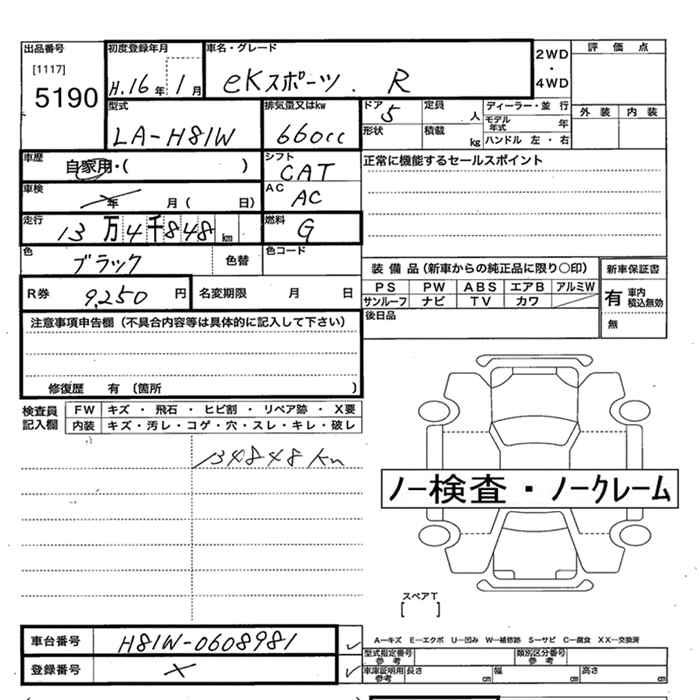 出品番号 初度登録年月 車名・グレード 2WD ・ 4WD 評価点
[1117]
5190 H.16年 1月 eKスポーツ. R
外装 内装
型式 排気量又はkw ドア 定員 ディーラー・並行
LA-H81W 660cc 5 人 モデル年式 年
形状 積載 kg ハンドル 左・右
車歴 自家用・( ) シフト CAT 正常に機能するセールスポイント
車検 年 月( 日) AC AC
走行 13万4千848km 燃料 G
色 ブラック 色替 色コード
装備品(新車からの純正品に限り○印) 新車保証書
R券 9,250円 名変期限 月 日 PS PW ABS エアB アルミW 有 車内積込無効
サンルーフ ナビ TV カワ
注意事項申告欄(不具合内容等は具体的に記入して下さい) 後日品 無
修復歴 有 (箇所 )
検査員記入欄 FW キズ・飛石・ヒビ割・リペア跡・X要
内装 キズ・汚レ・コゲ・穴・スレ・キレ・破レ
134848Km
ノー検査・ノークレーム
スペアT
[ ]
車台番号 H81W-0608981 A―キズ E―エクボ U―凹み W―補修跡 S―サビ C―腐食 XX―交換済
型式指定番号 参考 類別区分番号 参考
登録番号 × 車庫証明用 参考 長さ cm 幅 cm 高さ cm